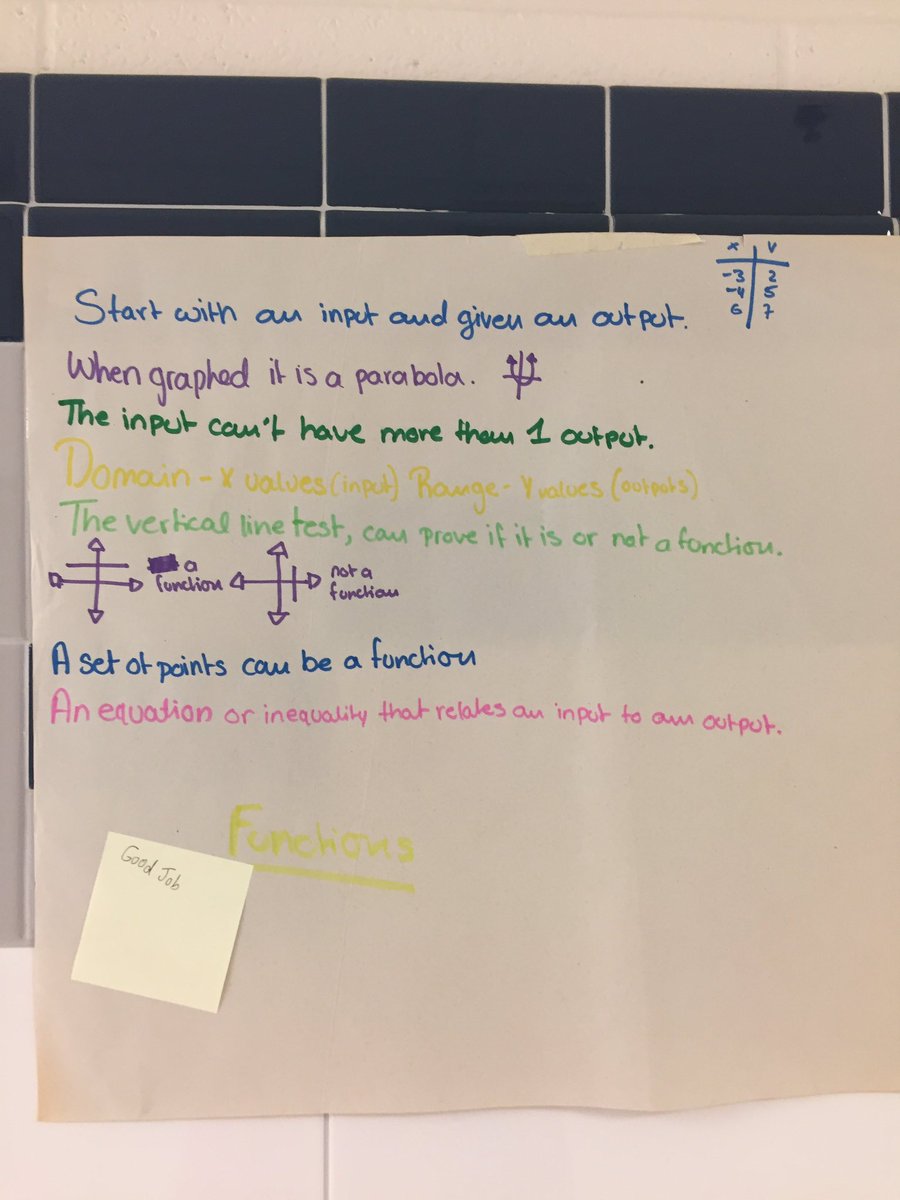 x y
-3 2
-4 5
6 7
Start with an input and given an output.
When graphed it is a parabola.
The input can't have more than 1 output.
Domain - x values (input) Range - y values (outputs)
The vertical line test, can prove if it is or not a function.
a function
not a function
A set of points can be a function
An equation or inequality that relates an input to an output.
Functions
Good Job